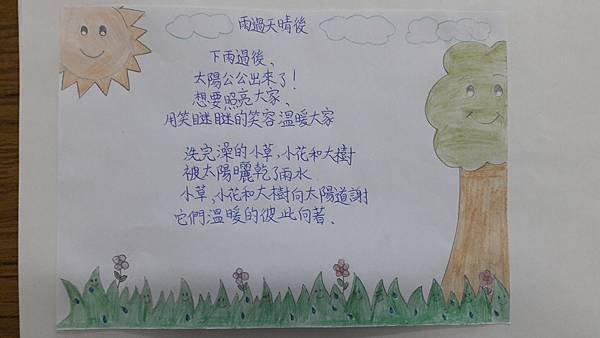 雨過天晴後
下雨過後、
太陽公公出來了！
想要照亮大家、
用笑瞇瞇的笑容溫暖大家
洗完澡的小草,小花和大樹
被太陽曬乾了雨水
小草,小花和大樹向太陽道謝
它們溫暖的彼此向著、